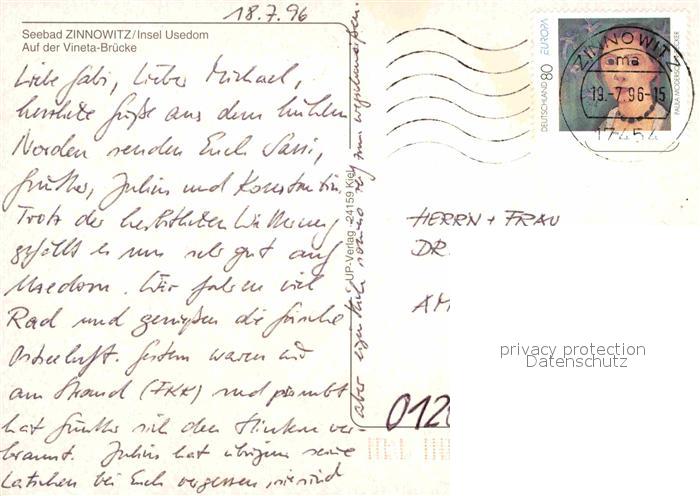 18.7.96
Seebad ZINNOWITZ/Insel Usedom
Auf der Vineta-Brücke
Liebe Gabi, Lieber Michael,
herzliche Grüße aus dem kühlen
Norden senden Euch Sassi,
Günther, Julius und Konstantin.
Trotz der herbstlichen Witterung
gefällt es uns sehr gut auf
Usedom. Wir fahren viel
Rad und genießen die frische
Ostseeluft. Gestern waren wir
am Strand (FKK) und prompt
hat Günther sich den Hintern ver-
brannt. Julius hat übrigens seine
Latschen bei Euch vergessen, sie sind
aber eigentlich sowieso reif zum wegschmeißen.
UP-Verlag · 24159 Kiel
DEUTSCHLAND 80 EUROPA
PAULA MODERSOHN-BECKER
ZINNOWITZ
ma
19.-7.96-15
17454
HERRN + FRAU
DR.
AM
privacy protection
Datenschutz
012